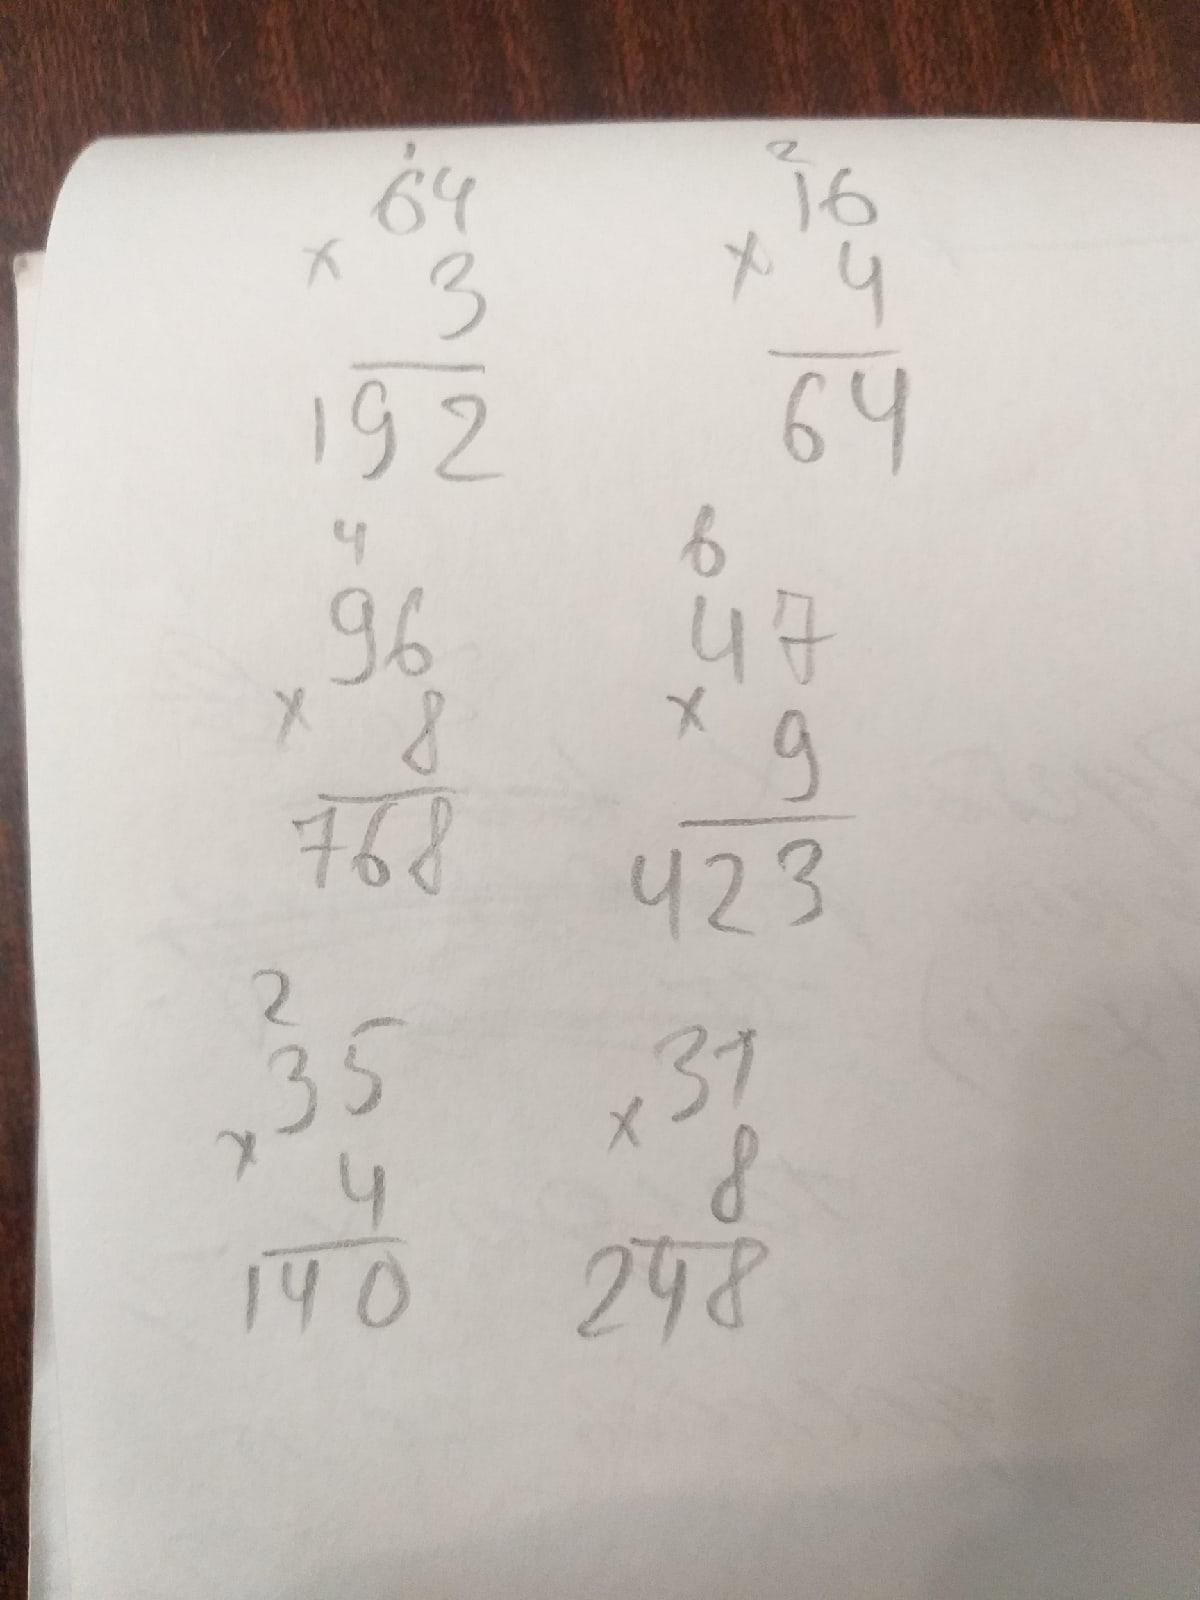 1 2
64 16
× 3 × 4
192 64
4 6
96 47
× 8 × 9
768 423
2
35 31
× 4 × 8
140 248